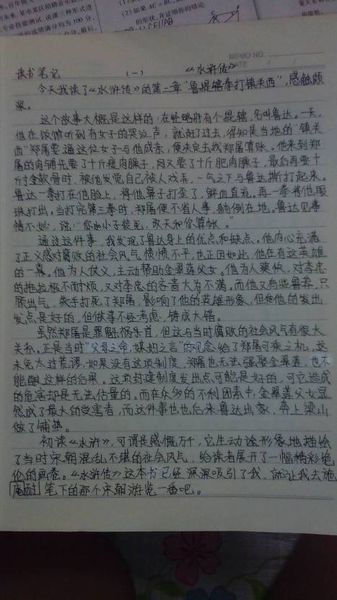 MEMO NO.
DATE
读书笔记 (一) 《水浒传》
今天我读了《水浒传》的第二章"鲁提辖拳打镇关西",感触颇
深。
这个故事大概是这样的:在渭州府有个提辖,名叫鲁达。一天,
他在饭馆听到有女子的哭泣声,就
郑屠要逼这位女子与他成亲,便决定去找郑屠算账。他来到郑
屠的肉铺先要了十斤瘦肉臊子,再又要了十斤肥肉臊子,最后再要十
斤金软骨时,被他发觉自己被人戏弄,一气之下与鲁达撕打起来。
鲁达一拳打在他脸上,将他鼻子打歪了,鲜血直流。再一拳将他眼
珠打出,当打完第三拳时,郑屠便不省人事,躺倒在地。鲁达见事
情不妙,说:"你这小子装死,改天和你算账。"
通过这件事,我发现了鲁达身上的优点和缺点。他内心充满
了正义感对腐败的社会风气愤愤不平,也正因如此,他在有这英雄
的一幕。他为人仗义,主动帮助金翠莲父女。他为人豪放,对李忠
的拖拉极不耐烦,又对李忠的吝啬大为不满。而他又有些鲁莽,只
顾出气,失手打死了郑屠,影响了他的英雄形象,但他的出发
点是好的,但做得不经考虑,铸成大错。
虽然郑屠是罪魁祸首,但这与当时腐败的社会风气有很大
关系。正是当时"父母之命,媒妁之言"的观念给了郑屠可乘之机,这
未免太过荒谬,如果没有这项制度,郑屠也无法强娶金翠莲,也不
能酿这样的后果。这项封建制度出发点可能是好的,可它造成
的危害却是无法估量的。而在众多的不利因素中,金翠莲父女显
然成了最大的受害者,而这件事也也后来鲁达出家,奔上梁山
做了铺垫。
初读《水浒》,可谓是感慨万千,它生动形象地描绘
了当时宋朝混乱不堪的社会风气,给读者展开了一幅精彩绝
伦的画卷。《水浒传》这本书已经深深吸引了我,就让我去施
耐庵笔下的那个宋朝游览一番吧。